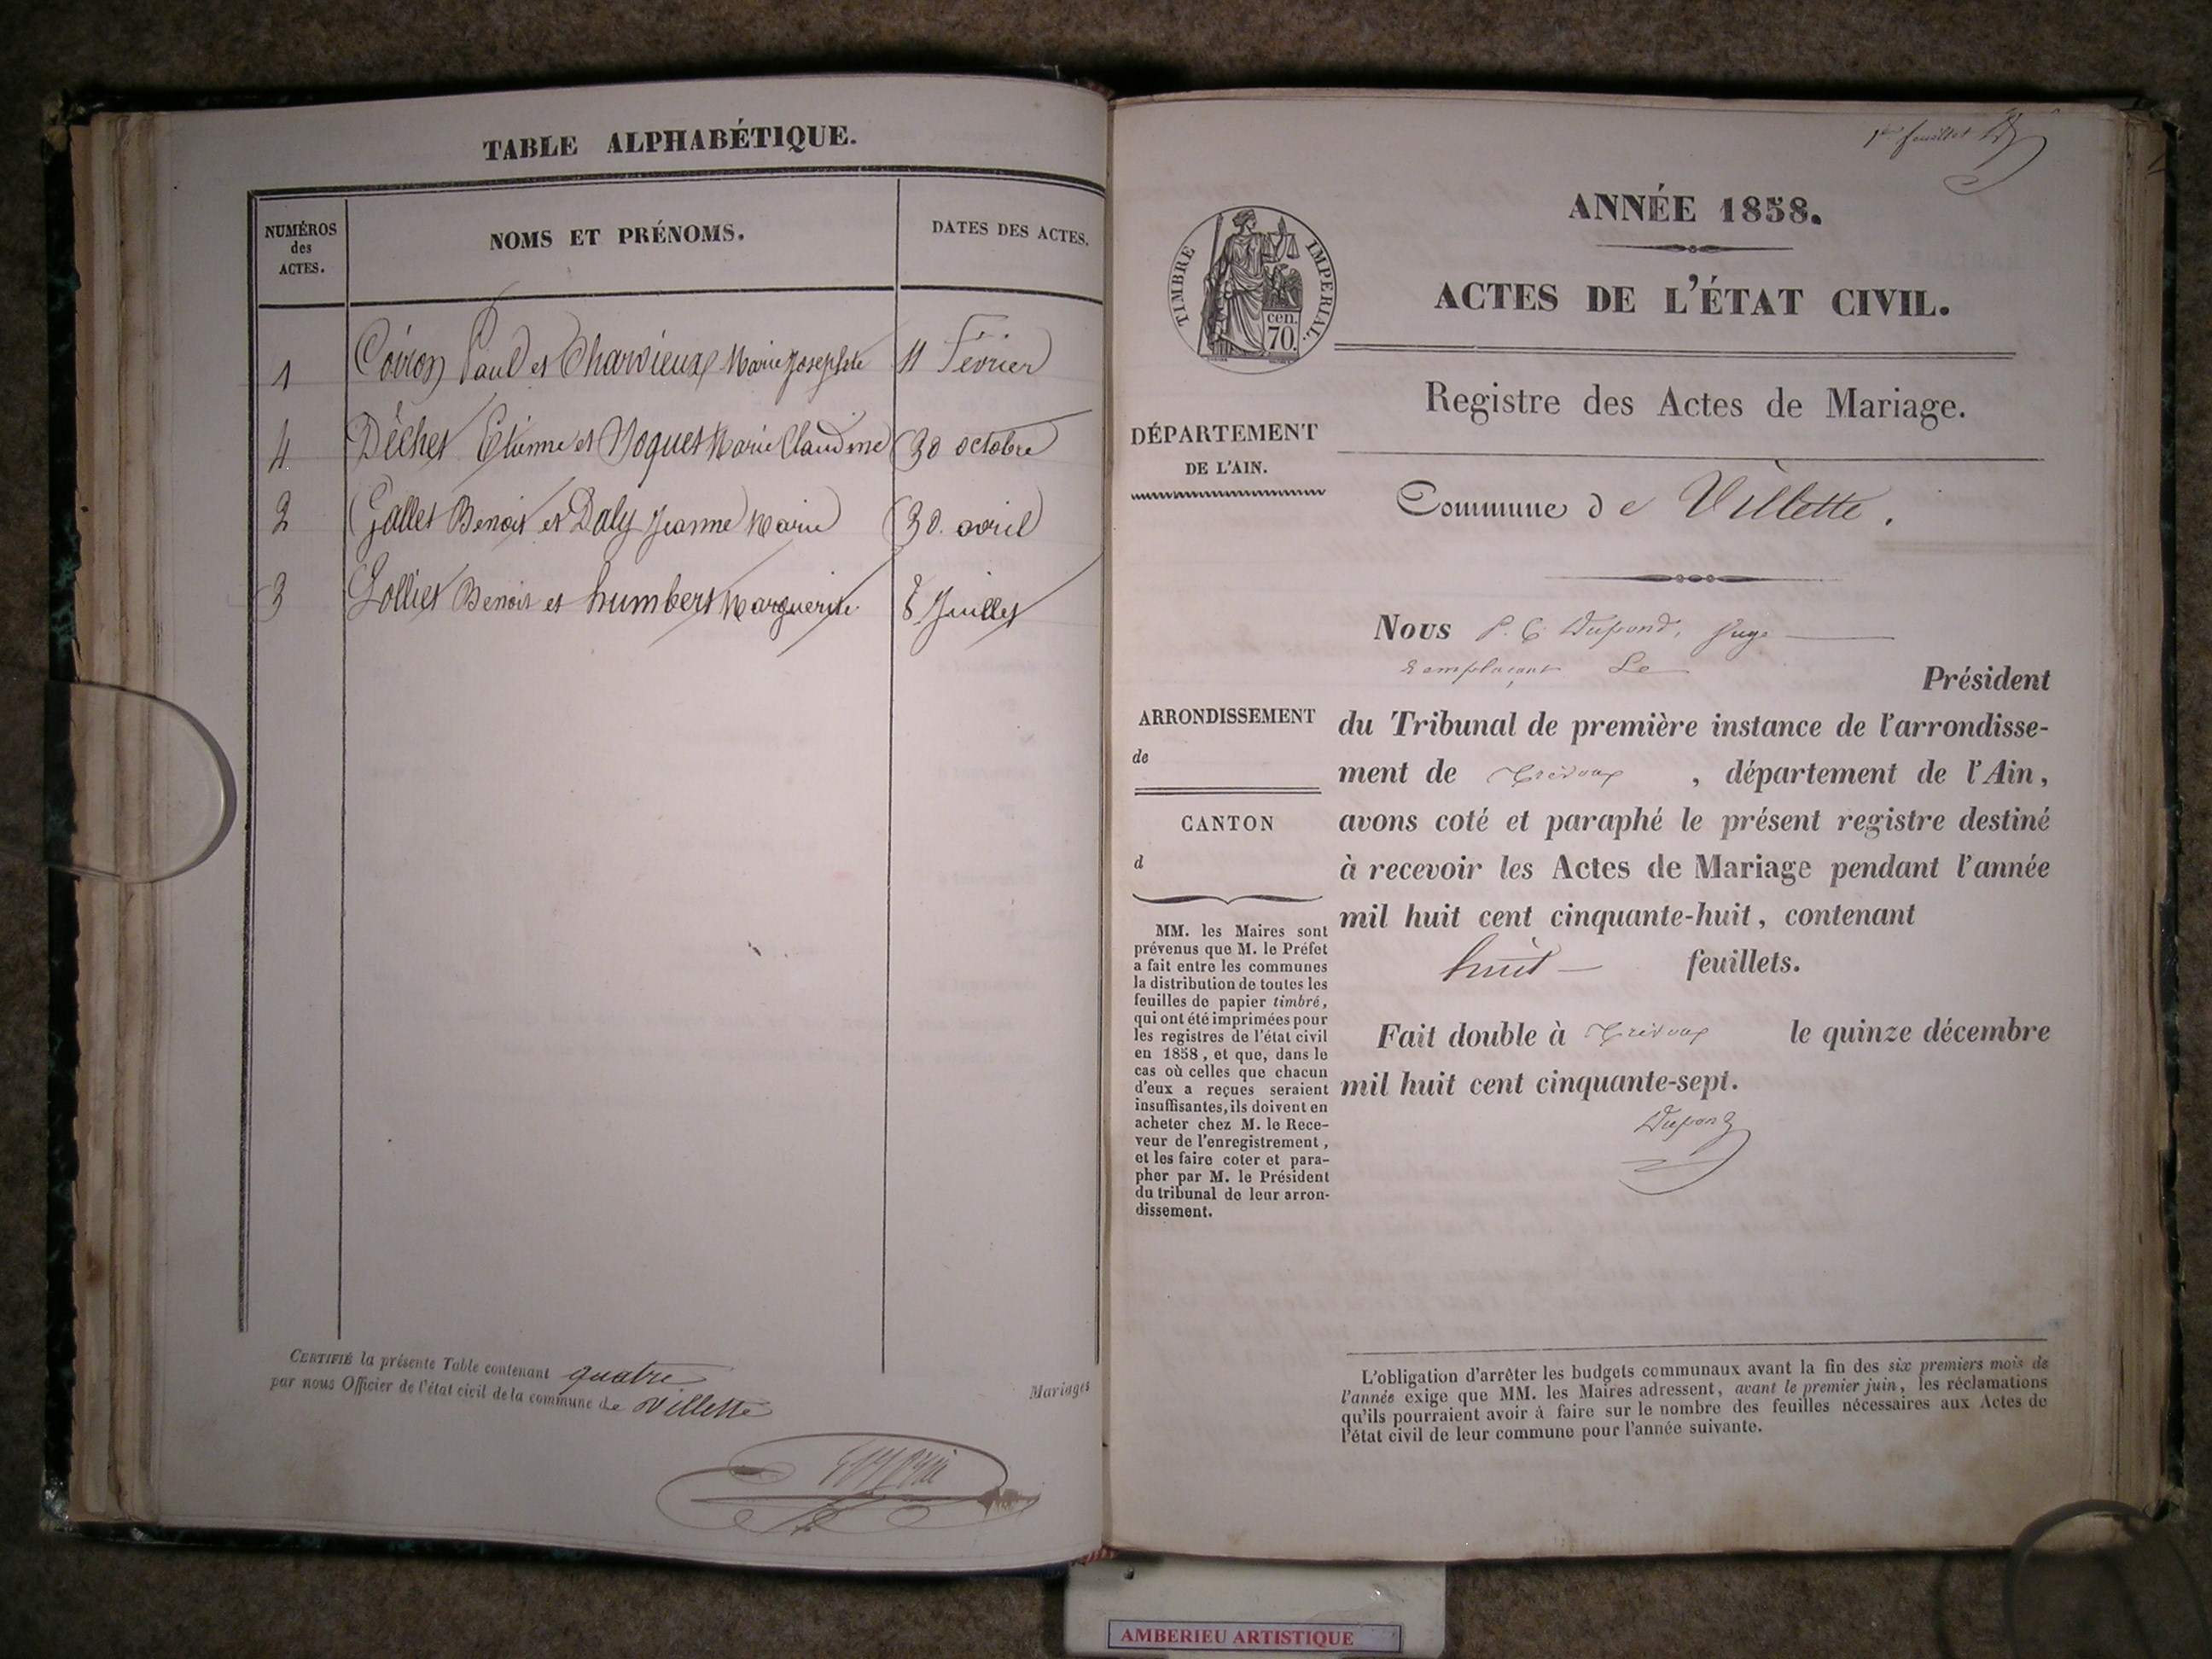 TABLE ALPHABÉTIQUE.
NUMÉROS des ACTES.
NOMS ET PRÉNOMS.
DATES DES ACTES.
1 Coiron Paul et Charvieux Marie Josephte 11 Février
4 Déchet Etienne et Noquet Marie Claudine 30 octobre
2 Gallet Benoit et Daly Jeanne Marie 30 avril
3 Lolliet Benoit et humbert Marguerite 8 Juillet
CERTIFIÉ la présente Table contenant quatre
par nous Officier de l'état civil de la commune de Villette
Mariages
1er feuillet
ANNÉE 1858.
TIMBRE IMPERIAL.
cen.
70.
ACTES DE L'ÉTAT CIVIL.
Registre des Actes de Mariage.
DÉPARTEMENT
DE L'AIN.
Commune de Villette.
Nous P. C. Dupond, Juge
remplaçant Le Président
ARRONDISSEMENT
de
CANTON
d
du Tribunal de première instance de l'arrondisse-
ment de Trévoux, département de l'Ain,
avons coté et paraphé le présent registre destiné
à recevoir les Actes de Mariage pendant l'année
mil huit cent cinquante-huit, contenant
huit feuillets.
Fait double à Trévoux le quinze décembre
mil huit cent cinquante-sept.
Dupond
MM. les Maires sont
prévenus que M. le Préfet
a fait entre les communes
la distribution de toutes les
feuilles de papier timbré,
qui ont été imprimées pour
les registres de l'état civil
en 1858, et que, dans le
cas où celles que chacun
d'eux a reçues seraient
insuffisantes, ils doivent en
acheter chez M. le Rece-
veur de l'enregistrement,
et les faire coter et para-
pher par M. le Président
du tribunal de leur arron-
dissement.
L'obligation d'arrêter les budgets communaux avant la fin des six premiers mois de
l'année exige que MM. les Maires adressent, avant le premier juin, les réclamations
qu'ils pourraient avoir à faire sur le nombre des feuilles nécessaires aux Actes de
l'état civil de leur commune pour l'année suivante.
AMBERIEU ARTISTIQUE